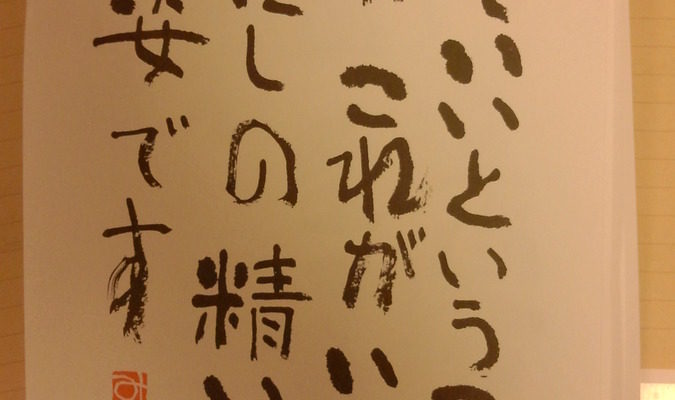 いいという
これがい
しの精い
姿です
み